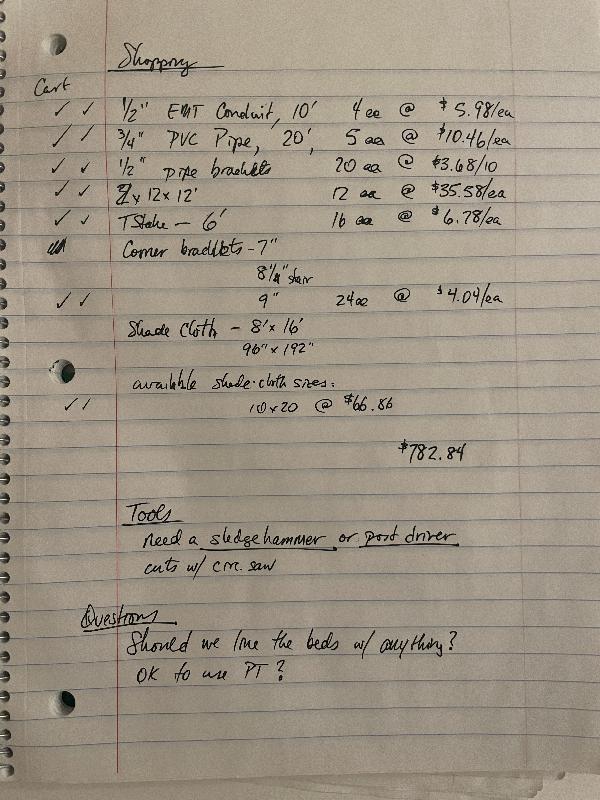 Shopping
Cart
✓ ✓ 1/2" EMT Conduit, 10' 4 ea @ $5.98/ea
✓ ✓ 3/4" PVC Pipe, 20', 5 ea @ $10.46/ea
✓ ✓ 1/2" pipe brackets 20 ea @ $3.68/10
✓ ✓ 2 x 12 x 12' 12 ea @ $35.58/ea
✓ ✓ T Stake - 6' 16 ea @ $6.78/ea
Corner brackets - 7"
8 1/4" stair
✓ ✓ 9" 24 ea @ $4.04/ea
Shade Cloth - 8' x 16'
96" x 192"
available shade-cloth sizes:
✓ ✓ 10 x 20 @ $66.86
$782.84
Tools
need a sledgehammer or post driver
cuts w/ circ. saw
Questions
Should we line the beds w/ anything?
OK to use PT?